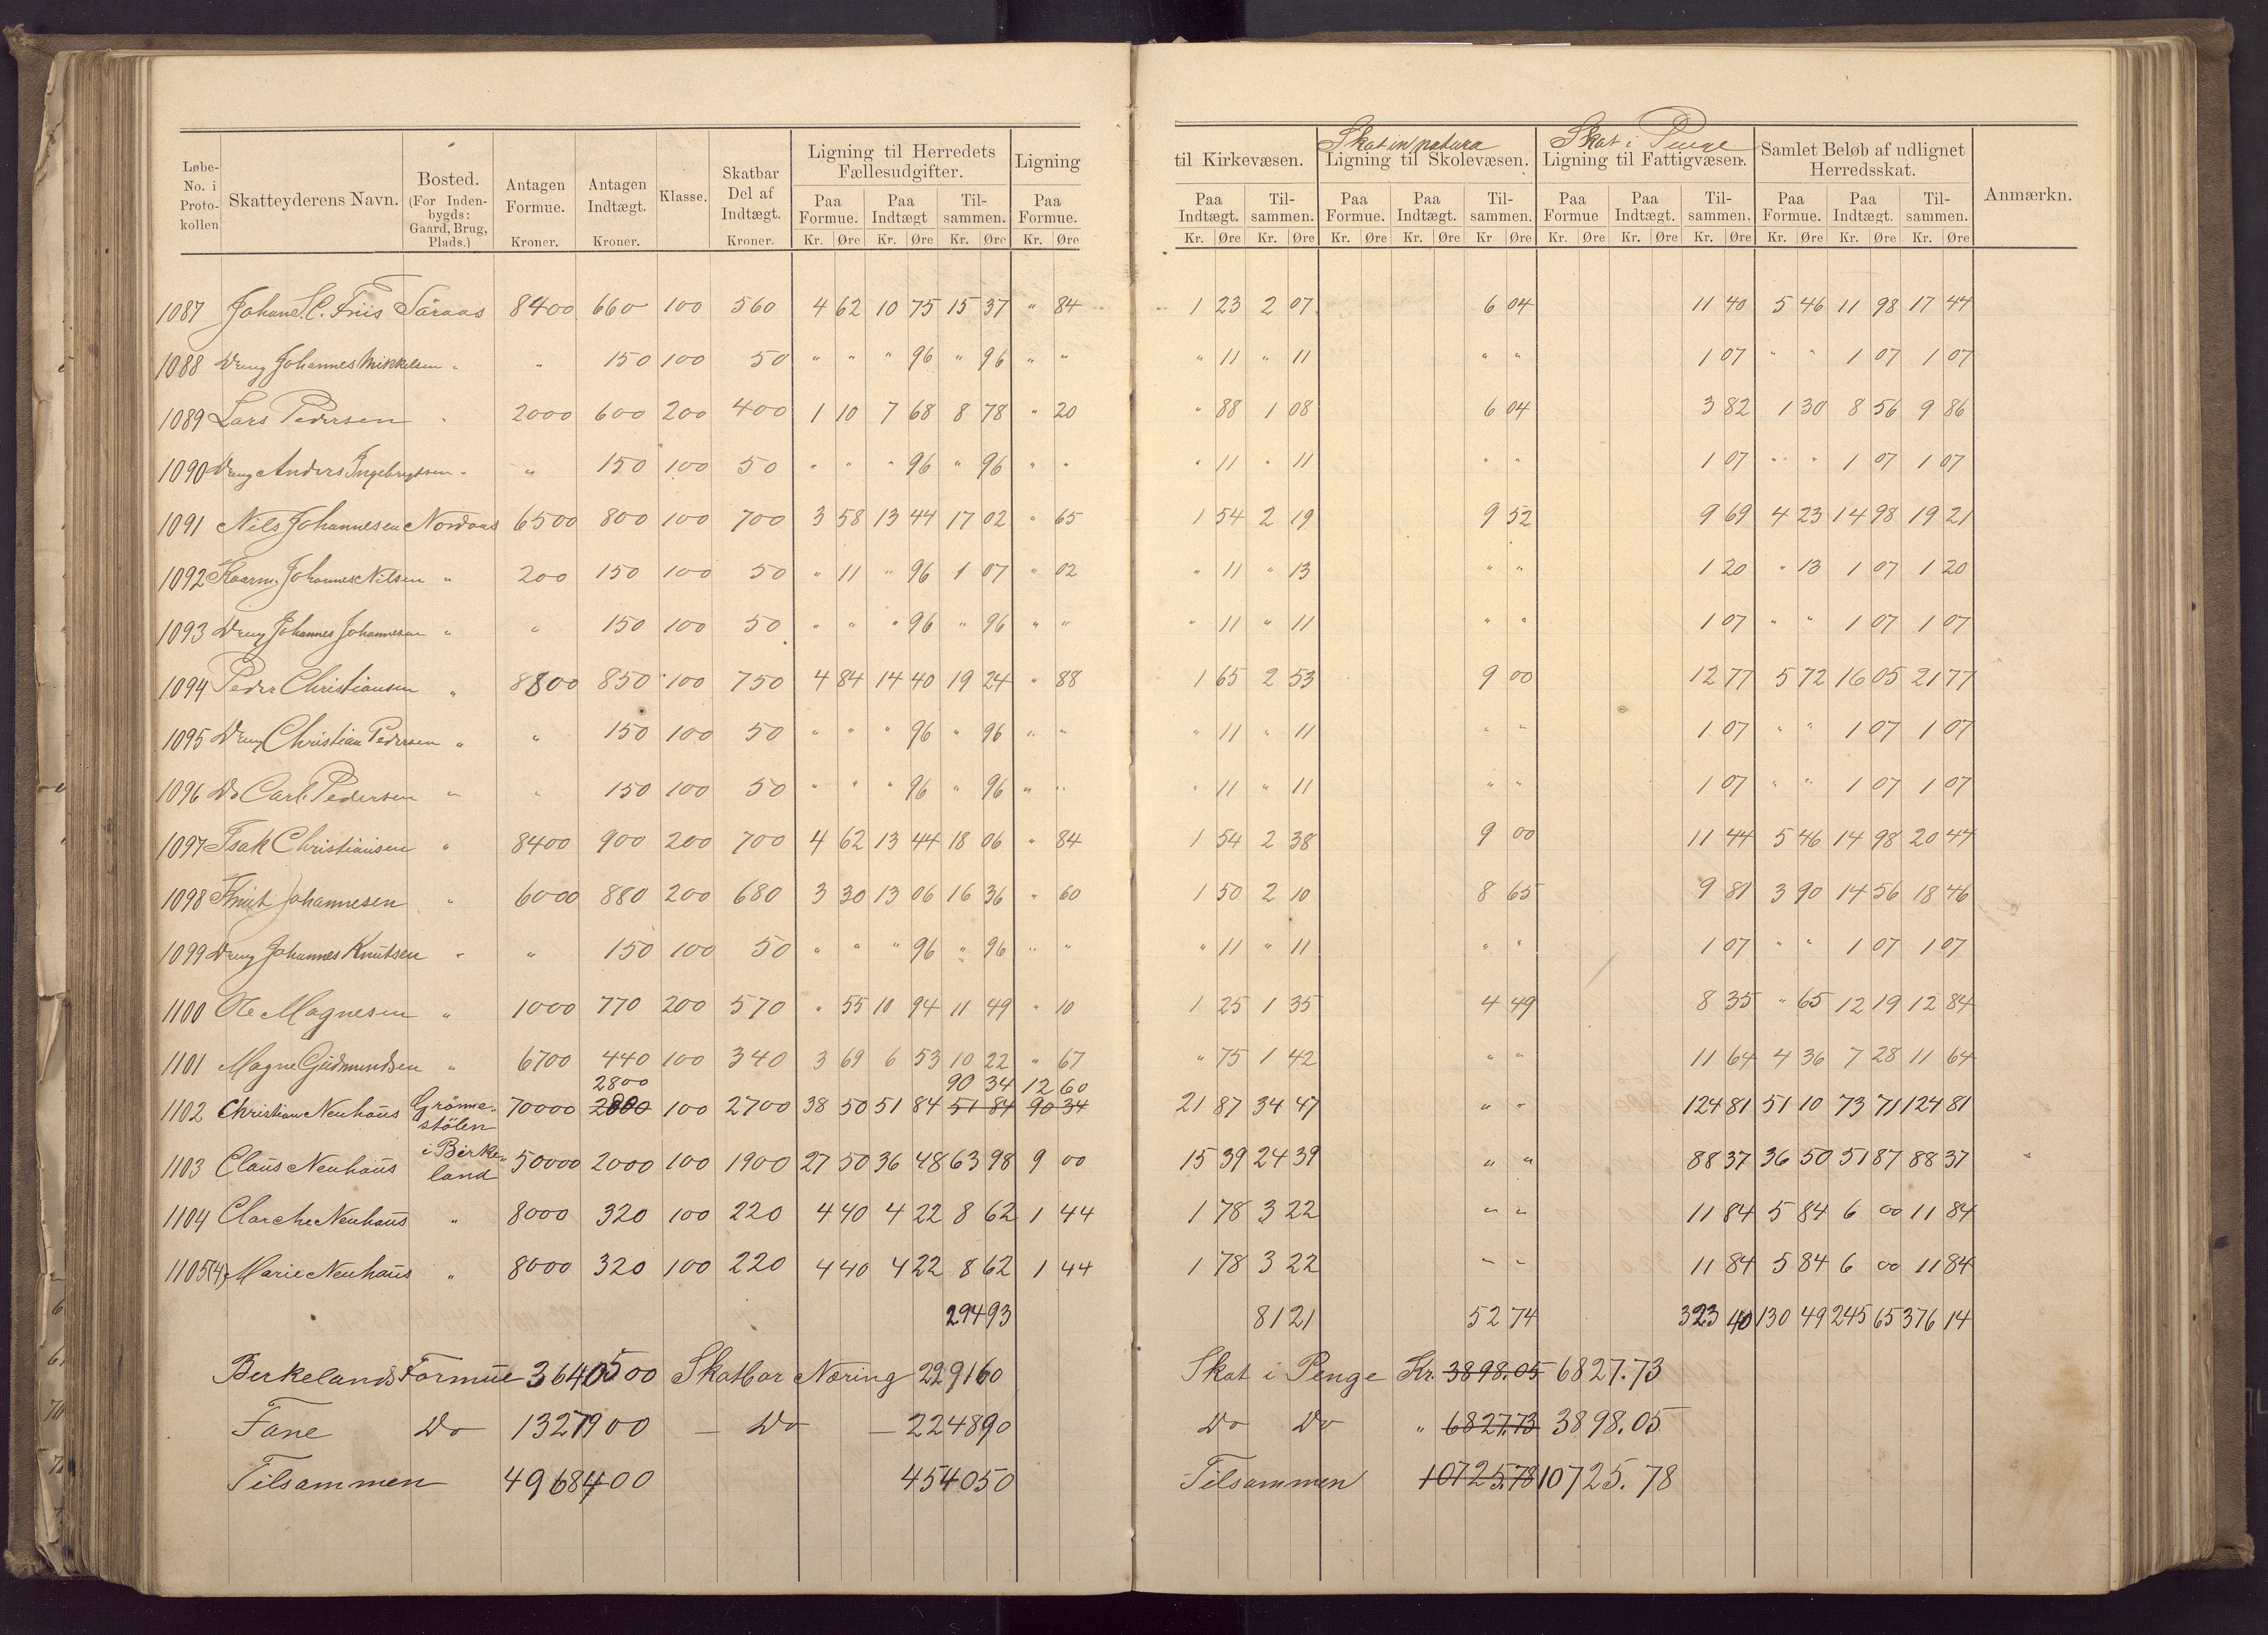 Løbe-No. i Protokollen | Skatteyderens Navn. | Bosted. (For Indenbygds: Gaard, Brug, Plads.) | Antagen Formue. Kroner. | Antagen Indtægt. Kroner. | Klasse. | Skatbar Del af Indtægt. Kroner. | Ligning til Herredets Fællesudgifter. Paa Formue. Kr. Øre | Paa Indtægt Kr. Øre | Tilsammen. Kr. Øre | Ligning Paa Formue. Kr. Øre | til Kirkevæsen. Paa Indtægt. Kr. Øre | Tilsammen. Kr. Øre | Skat in natura Ligning til Skolevæsen. Paa Formue. Kr. Øre | Paa Indtægt. Kr. Øre | Tilsammen. Kr Øre | Skat i Penge Ligning til Fattigvæsen. Paa Formue Kr. Øre | Paa Indtægt. Kr. Øre | Tilsammen. Kr. Øre | Samlet Beløb af udlignet Herredsskat. Paa Formue. Kr. Øre | Paa Indtægt. Kr. Øre | Tilsammen. Kr. Øre | Anmærkn.
1087 Johan S. C. Friis Säraas 8400 660 100 560 4 62 10 75 15 37 " 84 1 23 2 07 6 04 11 40 5 46 11 98 17 44
1088 Dreng Johannes Mikkelsen " " 150 100 50 " " " 96 " 96 " " " 11 " 11 " " 1 07 " " 1 07 1 07
1089 Lars Pedersen " 2000 600 200 400 1 10 7 68 8 78 " 20 " 88 1 08 6 04 3 82 1 30 8 56 9 86
1090 Dreng Anders Ingebrigtsen " " 150 100 50 " " " 96 " 96 " " " 11 " 11 " " 1 07 " " 1 07 1 07
1091 Nils Johannesen Nordaas 6500 800 100 700 3 58 13 44 17 02 " 65 1 54 2 19 9 52 9 69 4 23 14 98 19 21
1092 Kaarm. Johannes Nilsen " 200 150 100 50 " 11 " 96 1 07 " 02 " 11 " 13 " " 1 20 " 13 1 07 1 20
1093 Dreng Johannes Johannesen " " 150 100 50 " " " 96 " 96 " " " 11 " 11 " " 1 07 " " 1 07 1 07
1094 Peder Christiansen " 8800 850 100 750 4 84 14 40 19 24 " 88 1 65 2 53 9 00 12 77 5 72 16 05 21 77
1095 Dreng Christian Pedersen " " 150 100 50 " " " 96 " 96 " " " 11 " 11 " " 1 07 " " 1 07 1 07
1096 Do Carl Pedersen " " 150 100 50 " " " 96 " 96 " " " 11 " 11 " " 1 07 " " 1 07 1 07
1097 Isak Christiansen " 8400 900 200 700 4 62 13 44 18 06 " 84 1 54 2 38 9 00 11 44 5 46 14 98 20 44
1098 Knut Johannesen " 6000 880 200 680 3 30 13 06 16 36 " 60 1 50 2 10 8 65 9 81 3 90 14 56 18 46
1099 Dreng Johannes Knutsen " " 150 100 50 " " " 96 " 96 " " " 11 " 11 " " 1 07 " " 1 07 1 07
1100 Ole Magnesen " 1000 770 200 570 " 55 10 94 11 49 " 10 1 25 1 35 4 49 8 35 " 65 12 19 12 84
1101 Magne Gudmundsen " 6700 440 100 340 3 69 6 53 10 22 " 67 " 75 1 42 " " 11 64 4 36 7 28 11 64
2800 90 34 12 60
1102 Christian Neuhaus Grönnestölen 70000 2800 100 2700 38 50 51 84 51 84 90 34 21 87 34 47 " " 124 81 51 10 73 71 124 81
1103 Claus Neuhaus i Birkeland 50000 2000 100 1900 27 50 36 48 63 98 9 00 15 39 24 39 " " 88 37 36 50 51 87 88 37
1104 Clarche Neuhaus " 8000 320 100 220 4 40 4 22 8 62 1 44 1 78 3 22 " " 11 84 5 84 6 00 11 84
1105(4) Marie Neuhaus " 8000 320 100 220 4 40 4 22 8 62 1 44 1 78 3 22 " " 11 84 5 84 6 00 11 84
294 93 81 21 52 74 323 40 130 49 245 65 376 14
Berkelands Formue 3640500 Skatbar Næring 229160 Skat i Penge Kr. 3898.05 6827.73
Fane Do 1327900 — Do — 224890 Do Do " 6827.73 3898.05
Tilsammen 4968400 454050 Tilsammen 10725.78 10725.78